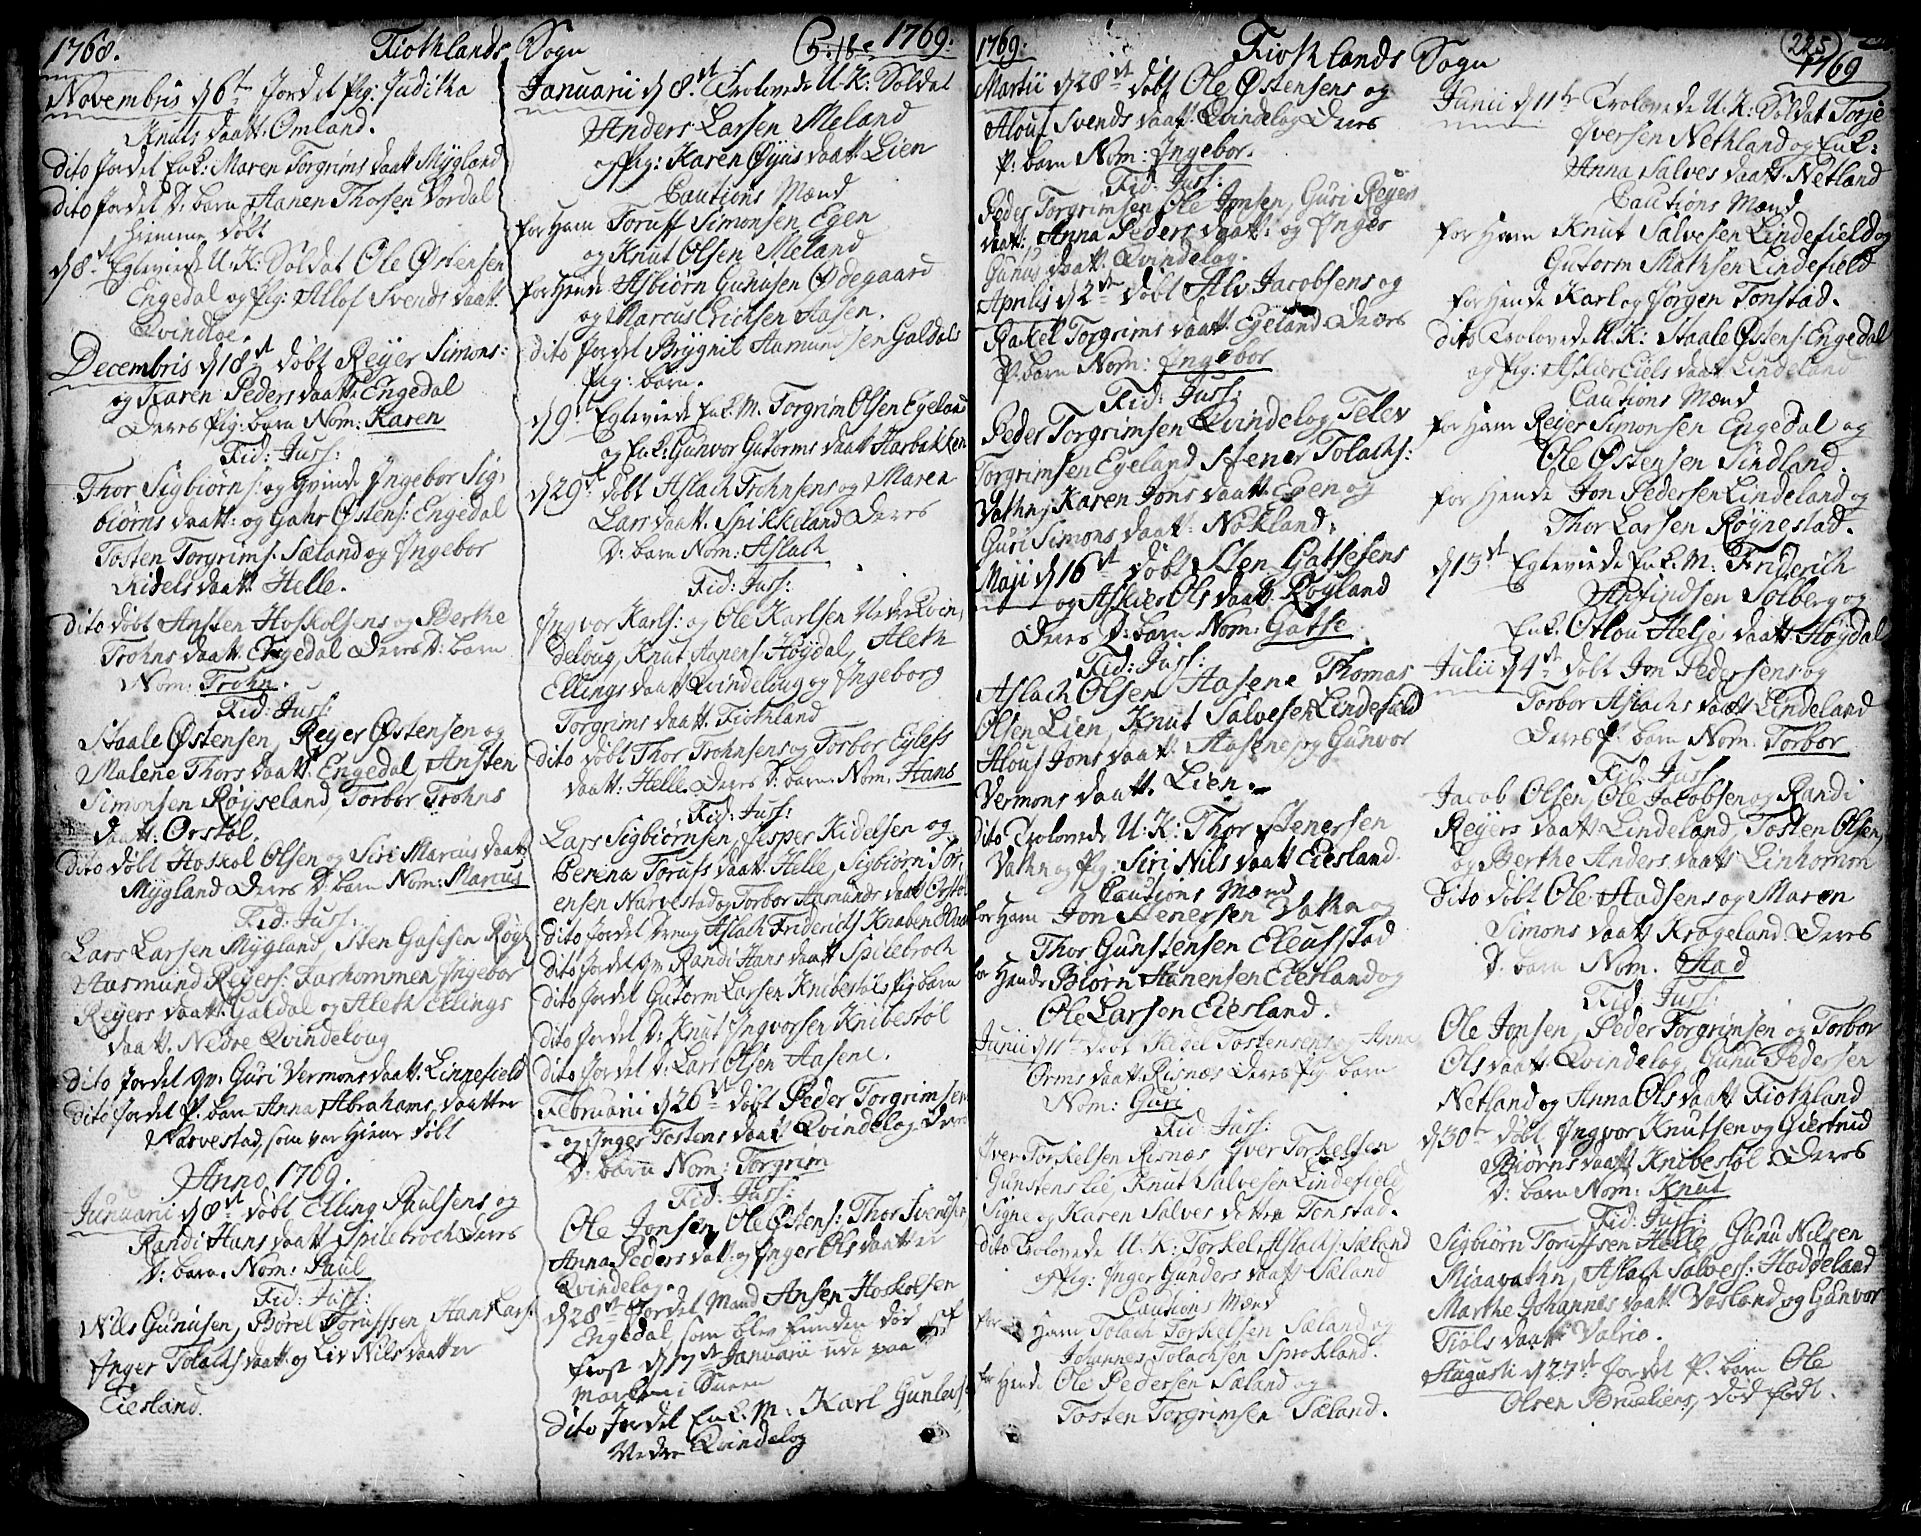 1768. Fiothlands Sogn
Novembris d 6te Jordet Pig: Juditha
Knuts daatt: Omland.
Dito Jordet Enk: Maren Torgrims daatt Mygland
Dito Jordet D: barn Aanen Thorsen Vordal
hiemme døbt
d 8de Egteviede U: K: Soldat Ole Østensen
Engedal og Pig: Allof Svends daatt:
Qvindloe.
Decembris d 18de døbt Reyer Simons:
og Karen Peders daatt: Engedal
Deres Pig: barn Nom: Karen
Fid: Juss:
Thor Sigbiørns: og Qvinde Ingebor Sig-
biørns daatt: og Gahr Østens: Engedal
Tosten Torgrims: Sæland og Ingebor
Kidels daatt: Helle.
Dito døbt Ansten Hoskolsens og Berthe
Trohns daatt: Engedal Deres D: barn
Nom: Trohn.
Fid: Juss:
Staale Østensen, Reyer Østensen og
Malene Thors daatt: Engedal, Ansten
Simonsen Røyseland, Torbor Trohns
daatt: Ørstøl.
Dito døbt Hoskol Olsen og Siri Marcus daatt
Mygland Deres D: barn Nom: Marcus
Fid: Juss:
Lars Larsen Mygland, Sten Gasesen Røyl:
Aasmund Reyers: Farhommen, Ingebor
Reyers daatt: Galdal og Aleth Ellings
daatt. Nedre Qvindeloug
Dito Jordet Qv: Guri Vermons daatt: Linnefield
Dito Jordet P: barn Anna Abrahams daatter
Narvestad, som var hieme døbt
Anno 1769.
Januarii d 8de døbt Elling Paulsens og
Randi Hans daatt Spilebroch Deres
D: barn. Nom: Paul
Fid: Juss:
Nils Gunusen, Borel Toruffsen Hans Lars:
Inger Tolachs daatt og Liv Nils daatter
Eiesland.
1769.
Januarii d 8de Trolovede U: K: Soldat
Anders Larsen Meland
og Pig: Karen Øyus daatt Lien
Cautions Mænd
for Ham Toruff Simonsen Egen
og Knut Olsen Meland
for Hende Asbiørn Gunusen Ødegaard
og Marcus Erichsen Aasen.
Dito Jordet Brygnil Aamundsen Galdals
Pig: barn.
d 9de Egteviede Enk: M. Torgrim Olsen Egeland
og Enk: Gunvor Gutorms daatt Harbakken
d 29de døbt Aslach Trohnsens og Maren
Lars daatt. Spikkeland Deres
D: barn Nom: Aslach
Fid: Juss:
Ingvor Karls: og Ole Karlsen Neder Qvin-
deloug, Knut Aanens: Høydal, Aleth
Ellings daatt Qvindeloug og Ingeborg
Torgrims daatt. Fiothland
Dito døbt Thor Trohnsens og Torbor Eylefs
daatt: Helle. Deres D: barn. Nom: Hans
Fid: Juss:
Lars Sigbiørnsen, Jesper Kidelsen og
Berina Torufs daatt Helle, Sigbiørn Tor-
ensen Narvestad og Torbor Aamunds daatt Ørstøl
Dito Jordet Dreng Aslach Friderichs Knaben
Dito Jordet Qv. Randi Hans daatt Spilebroch
Dito Jordet Gutorm Larsen Knibestøls Pigbarn
Dito Jordet D: Knut Ingvorsen Knibestøl
Dito Jordet D: Lars Olsen Aasene.
Februarii d 26de døbt Peder Torgrimsen
og Inger Tostens daatt Qvindelog Deres
D: barn Nom: Torgrim
Fid: Juss:
Ole Jonsen, Ole Østens: Thor Svendsen
Anna Peders datt: og Inger Ols daatter
Qvindelog.
d 28de Jordet Mand Ansen Hoskolsen
Engedal, som blev funden død af
frost d 17de Januarii ude paa
Marken i Sneen
Dito Jordet Enk. M: Karl Gunlefs:
Nedre Qvindelog
1769. Fiothlands Sogn
Martii d 28de døbt Ole Østensens og
Alouf Svends daatt Qvindelog Deres
P: barn Nom: Ingebor.
Fid: Juss:
Peder Torgrimsen, Ole Jonsen, Guri Reyers
daatt: Anna Peders daatt: og Inger
Gunus daatt: Qvindelog.
Aprilis d 2de døbt Alv Jacobsens og
Rakel Torgrims daatt. Egeland Deres
P. barn Nom: Ingebor
Fid: Juss:
Peder Torgrimsen Qvindelog, Tellev
Torgrimsen Egeland, Stener Tolachs:
Vathn, Karen Jons daatt Egen og
Guri Simons daatt: Nøkland.
Maji d 16de døbt Sten Gatsesens
og Askier Ols daatt: Røyland
Deres D: barn Nom: Gatse.
Fid: Juss:
Aslach Olsen Aasene Thomas
Olsen Lien, Knut Salvesen Lindefield
Alouf Jons daatt: Aasene, og Gunvor
Vermons daatt. Lien.
Dito Trolovede U: K: Thor Stenersen
Vathn og Pig: Siri Nils daatt Eiesland.
Cautions Mænd
for Ham Jon Stenersen Vathn og
Thor Gunstensen Eleufstad
for Hende Biørn Aanensen Eiesland og
Ole Larsen Eiesland.
Junii d 11te døbt Kidel Tostensens og Anna
Orms daatt Risnæs Deres Pig. barn
Nom: Guri
Fid: Juss:
Iver Torkelsen Risnæs Iver Torkelsen
Gunstenslie, Knut Salvesen Lindefield
Signe og Karen Salves dettre Tonstad.
Dito Trolovede U: K: Torkel Aslachs: Sæland
og Pig: Inger Gunders daatt Sæland
Cautions Mænd
for Ham Tolach Torkelsen Sæland og
Johannes Tolachsen Sprokland.
for Hende Ole Pedersen Sæland og
Tosten Torgrimsen Sæland.
225
1769
Junii d 11te Trolovede U: K: Soldat Torje
Iversen Nethland og Enk:
Anna Salves daatt: Netland
Cautions Mænd
for Ham Knut Salvesen Lindefield og
Gutorm Mathsen Lindefield
for Hende Karl og Jørgen Tonstad.
Dito Trolovede U. K: Staale Østens: Engedal
og Pig: Askier Eiels daatt Lindeland
Cautions Mænd
for Ham Reyer Simonsen Engedal og
Ole Østensen Sindland.
for Hende Jon Pedersen Lindeland og
Thor Larsen Røynestad.
d 13de Egteviede Enk. M: Friderich
Solberg og
Enk. Otlou Heljes daatt Høydal
Julii d 4de døbt Jon Pedersens og
Torbor Aslachs daatt Lindeland
Deres P. barn Nom: Torbor
Fid: Juss
Jacob Olsen, Ole Jacobsen og Randi
Reyers daatt Lindeland, Tosten Olsen,
og Berthe Anders daatt Linhommen
Dito døbt Ole Aadsens og Maren
Simons daatt Krogeland. Deres
D: barn Nom. Aad
Fid: Juss:
Ole Jonsen, Peder Torgrimsen og Torbor
Ols daatt Qvindelog, Gunu Pedersen
Netland og Anna Ols daatt Fiothland
d 30te døbt Ingvor Knutsen og Giertrud
Biørns daatt Knibestøl Deres
D: barn Nom: Knut
Fid: Juss:
Sigbiørn Toruffsen Helle, Gunu Nilsen
Miaavathn, Aslach Salves: Haddeland
Marthe Johannes daatt Vosland og Gunvor
Tiøls daatt Valrio.
Augusti d 27de Jordet P. barn Ole
Olsen Brueliens, død født.